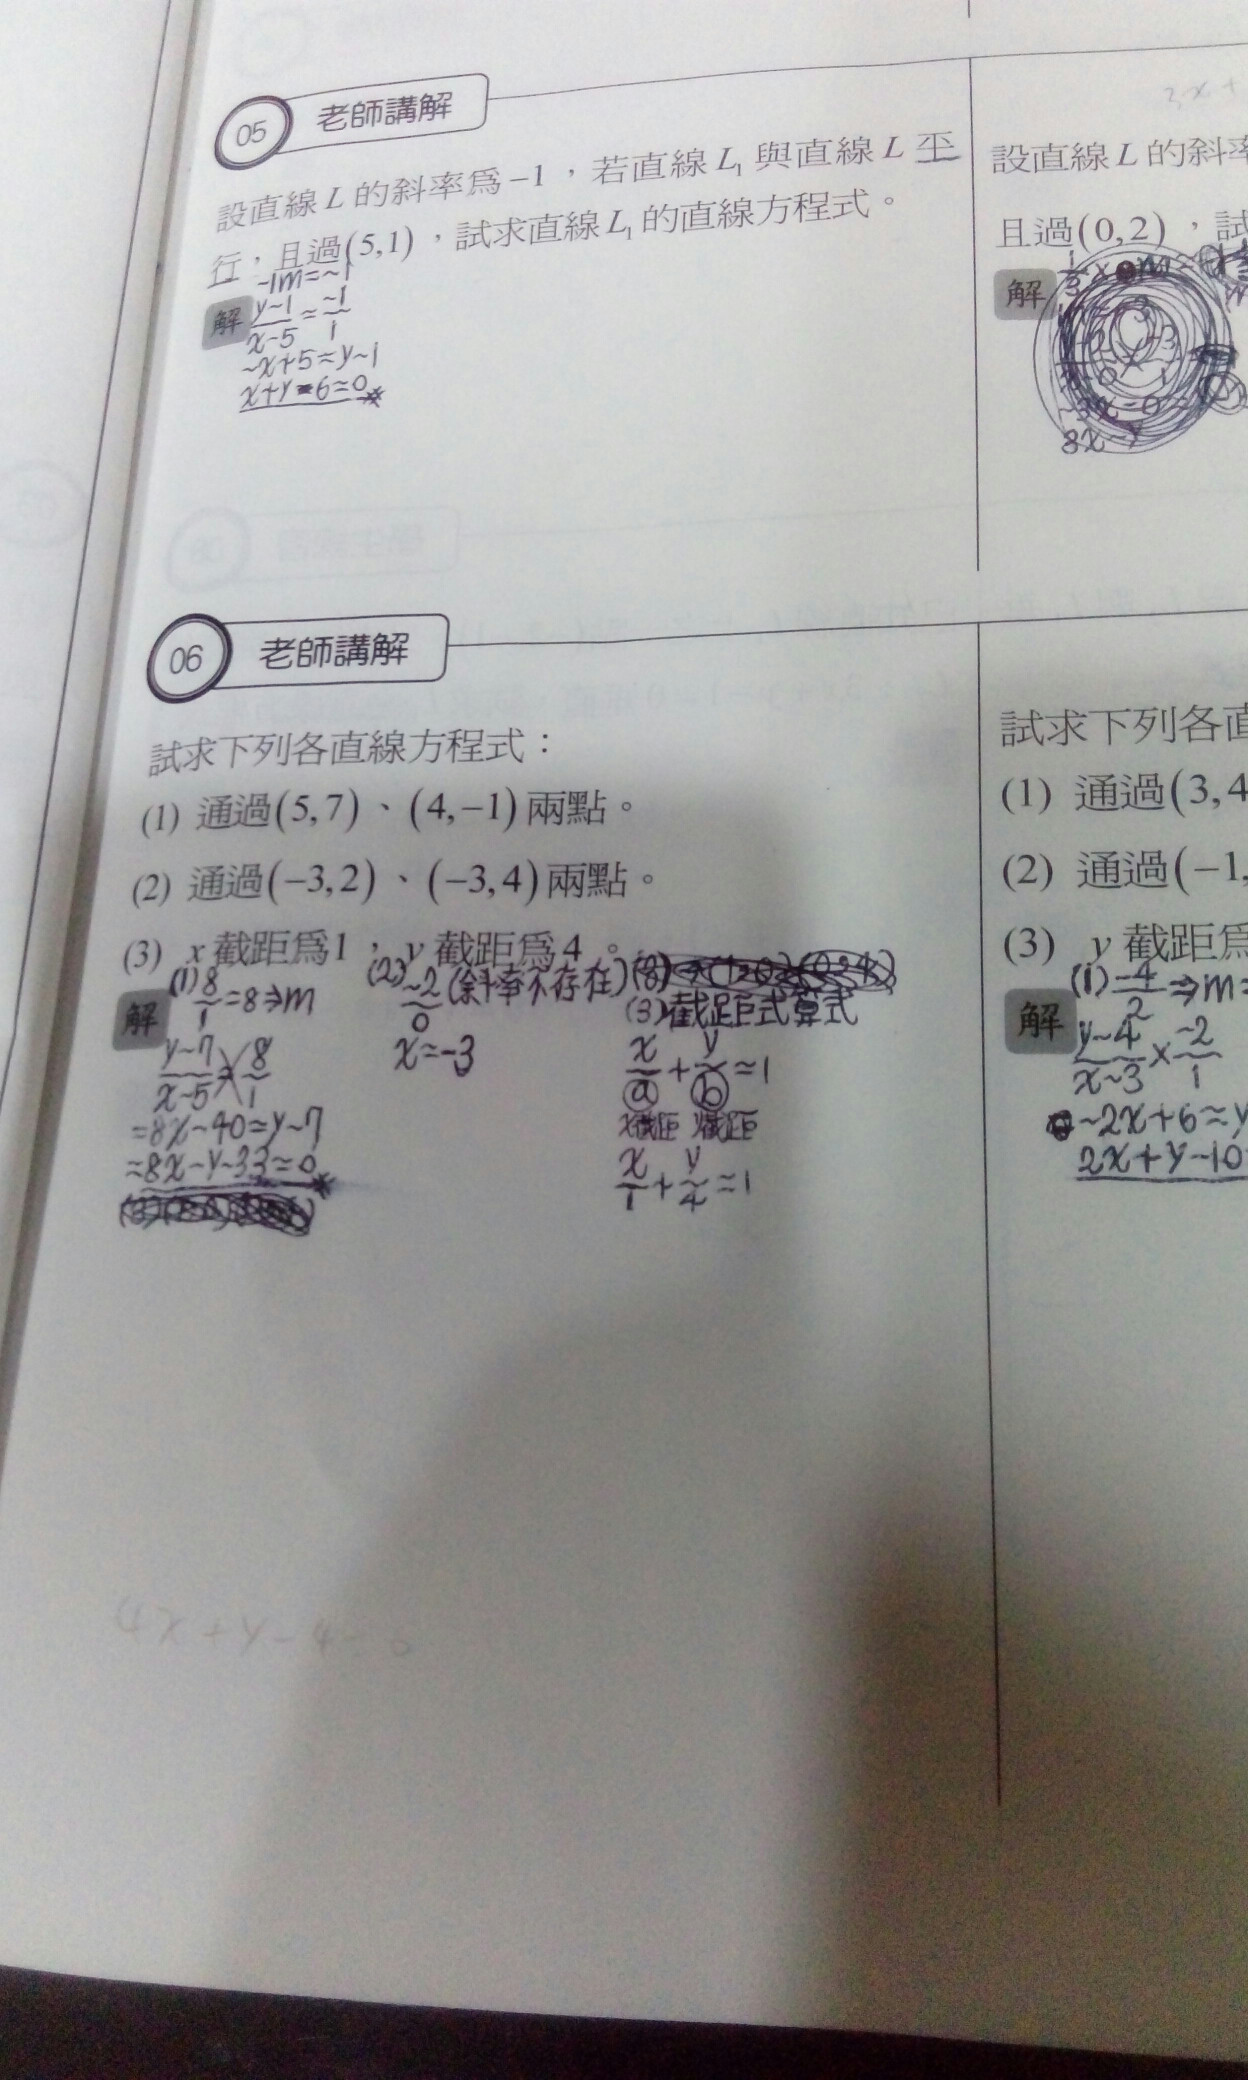 05 老師講解
設直線L的斜率為-1，若直線L₁與直線L平
行，且過(5,1)，試求直線L₁的直線方程式。
-1m=~1
解 y~1/x-5=~1/1
~x+5=y~1
x+y-6=0
3x+
設直線L的斜率
且過(0,2)，試
解
8x-y
06 老師講解
試求下列各直線方程式：
(1) 通過(5,7)、(4,-1)兩點。
(2) 通過(-3,2)、(-3,4)兩點。
(3) x截距為1，y截距為4。
解 (1) 8/1=8⇒m
y~7/x~5=8/1
=8x~40=y~7
=8x~y~33=0
(2) ~2/0 (斜率不存在)
x=-3
(3)截距式算式
x/a+y/b=1
x截距 y截距
x/1+y/4=1
試求下列各直
(1) 通過(3,4
(2) 通過(-1,
(3) y截距為
解 (1) -4/2⇒m=
y~4/x~3×~2/1
~2x+6=y
2x+y~10